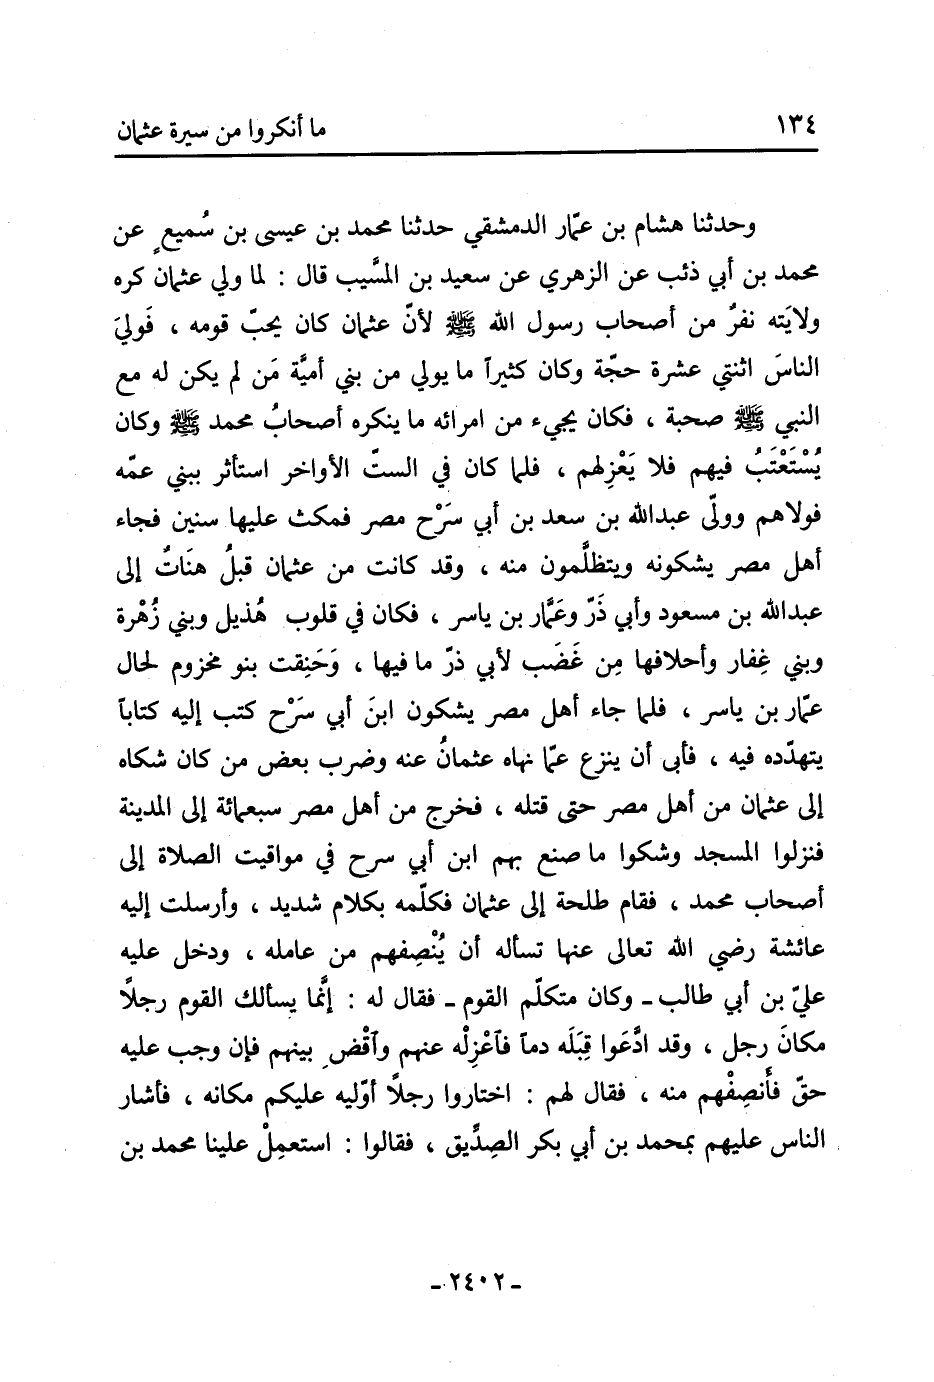 ١٣٤ ما أنكروا من سيرة عثمان
وحدثنا هشام بن عمّار الدمشقي حدثنا محمد بن عيسى بن سُميعٍ عن
محمد بن أبي ذئب عن الزهري عن سعيد بن المسَّيب قال : لما ولي عثمان كره
ولايَته نفرٌ من أصحاب رسول الله ﷺ لأنّ عثمان كان يحبّ قومه ، فَوليَ
الناسَ اثنتي عشرة حجّة وكان كثيراً ما يولي من بني أميَّة مَن لم يكن له مع
النبي ﷺ صحبة ، فكان يجيء من امرائه ما ينكره أصحابُ محمد ﷺ وكان
يُسْتَعْتَبُ فيهم فلا يَعْزِلهم ، فلما كان في الستّ الأواخر استأثر ببني عمّه
فولاهم وولّى عبدالله بن سعد بن أبي سَرْح مصر فمكث عليها سنين فجاء
أهل مصر يشكونه ويتظلَّمون منه ، وقد كانت من عثمان قبلُ هنَاتٌ إلى
عبدالله بن مسعود وأبي ذَرّ وعَمَّار بن ياسر ، فكان في قلوب هُذيل وبني زُهْرة
وبني غِفار وأحلافها مِن غَضَب لأبي ذرّ ما فيها ، وَحَنِقت بنو مخزوم لحال
عمّار بن ياسر ، فلما جاء أهل مصر يشكون ابنَ أبي سَرْح كتب إليه كتاباً
يتهدّده فيه ، فأبى أن ينزع عمّا نهاه عثمانُ عنه وضرب بعض من كان شكاه
إلى عثمان من أهل مصر حتى قتله ، فخرج من أهل مصر سبعمائة إلى المدينة
فنزلوا المسجد وشكوا ما صنع بهم ابن أبي سرح في مواقيت الصلاة إلى
أصحاب محمد ، فقام طلحة إلى عثمان فكلّمه بكلام شديد ، وأرسلت إليه
عائشة رضي الله تعالى عنها تسأله أن يُنْصِفهم من عامله ، ودخل عليه
عليّ بن أبي طالب ـ وكان متكلّم القوم ـ فقال له : إنَّما يسألك القوم رجلًا
مكانَ رجل ، وقد ادَّعَوا قِبَلَه دماً فآعْزِلْه عنهم وآقْضِ بينهم فإن وجب عليه
حقّ فأَنصِفْهم منه ، فقال لهم : اختاروا رجلًا أوّليه عليكم مكانه ، فأشار
الناس عليهم بمحمد بن أبي بكر الصِدَّيق ، فقالوا : استعمِلْ علينا محمد بن
ـ ٢٤٠٢ ـ